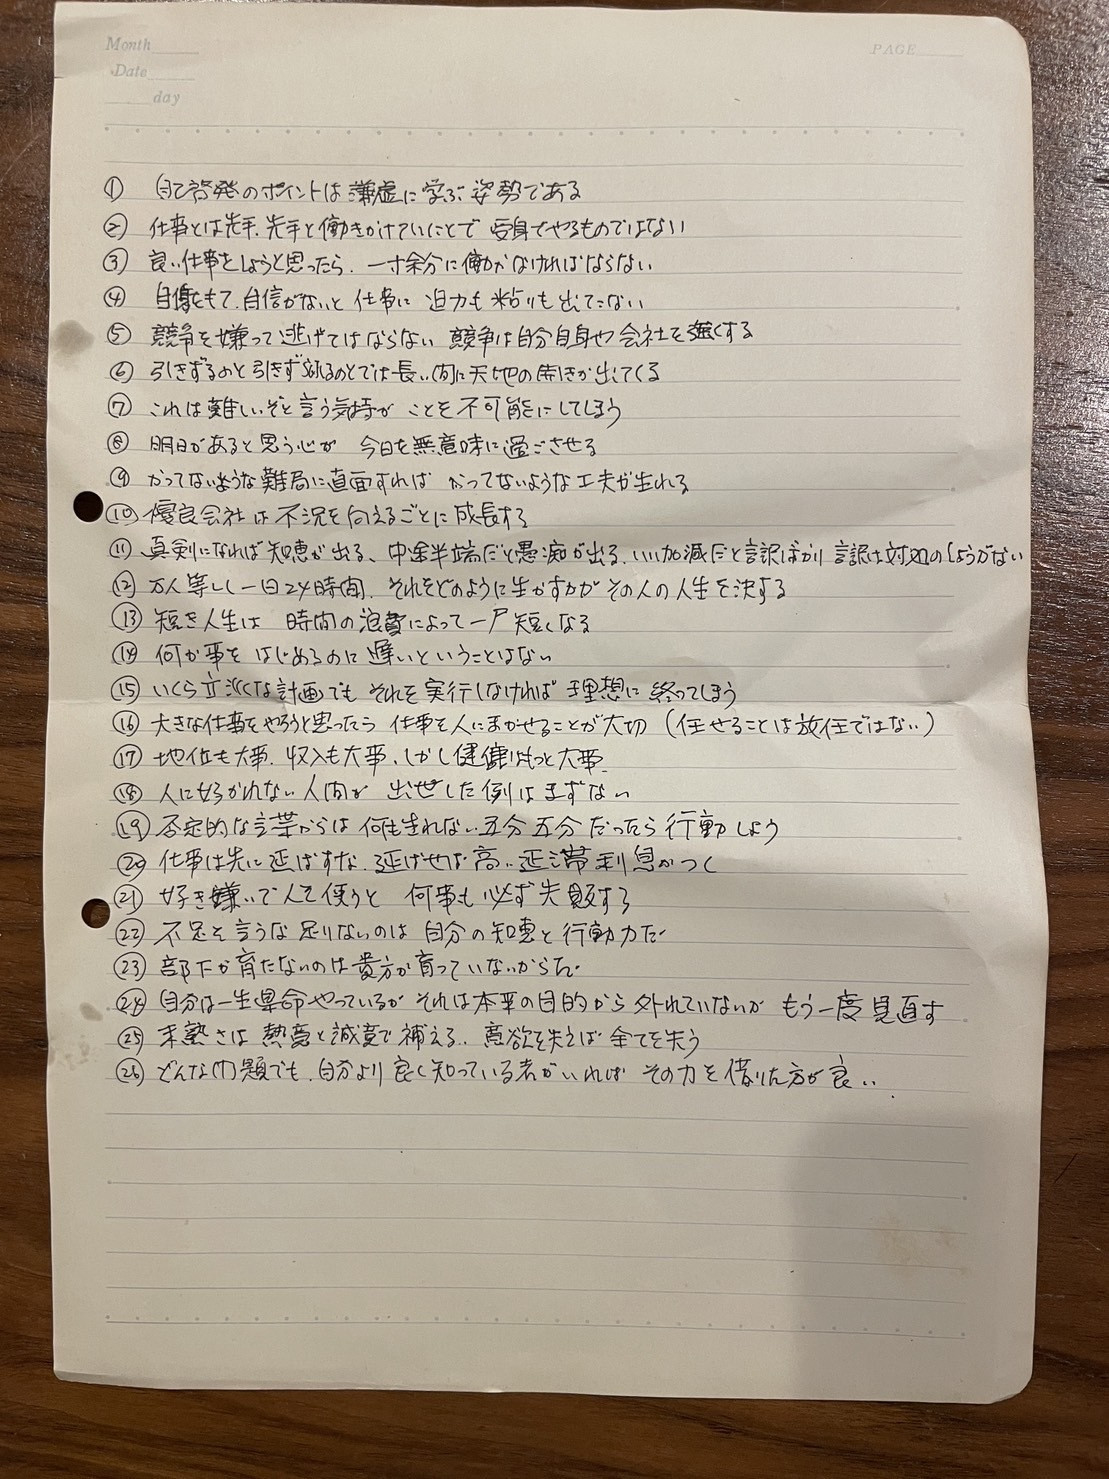 Month
Date
day
PAGE
① 自己啓発のポイントは謙虚に学ぶ姿勢である
② 仕事とは先手、先手と働きかけていくことで 受身でやるものではない
③ 良い仕事をしようと思ったら、一寸余分に働かなければならない
④ 自信をもて、自信がないと 仕事に 迫力も 粘りも 出てこない
⑤ 競争を嫌って逃げてはならない 競争は自分自身や会社を強くする
⑥ 引きずるのと引きずられるのとでは長い間に天地の開きが出てくる
⑦ これは難しいぞと言う気持が ことを不可能にしてしまう
⑧ 明日があると思う心が 今日を無意味に過ごさせる
⑨ かってないような難局に直面すれば かってないような工夫が生れる
⑩ 優良会社は不況を向えるごとに成長する
⑪ 真剣になれば知恵が出る、中途半端だと愚痴が出る、いい加減だと言訳ばかり 言訳は対処のしようがない
⑫ 万人等しく一日24時間、それをどのように生かすかが その人の人生を決する
⑬ 短き人生は 時間の浪費によって一層短くなる
⑭ 何か事を はじめるのに 遅いということはない
⑮ いくら立派な計画でも それを実行しなければ 理想に 終ってしまう
⑯ 大きな仕事をやろうと思ったら 仕事を人にまかせることが大切 (任せることは放任ではない)
⑰ 地位も大事、収入も大事、しかし健康はもっと大事
⑱ 人に好かれない人間が 出世した例はまずない
⑲ 否定的な言葉からは 何も生れない 五分五分だったら行動しよう
⑳ 仕事は先に延ばすな、延ばせば高い延滞利息がつく
㉑ 好き嫌いで人を使うと 何事も必ず失敗する
㉒ 不足を言うな 足りないのは 自分の知恵と行動力だ
㉓ 部下が育たないのは貴方が育っていないからだ
㉔ 自分は一生懸命やっているが それは本来の目的から外れていないか もう一度見直す
㉕ 未熟さは 熱意と誠意で補える、意欲を失えば全てを失う
㉖ どんな問題でも、自分より良く知っている者がいれば その力を借りた方が良い